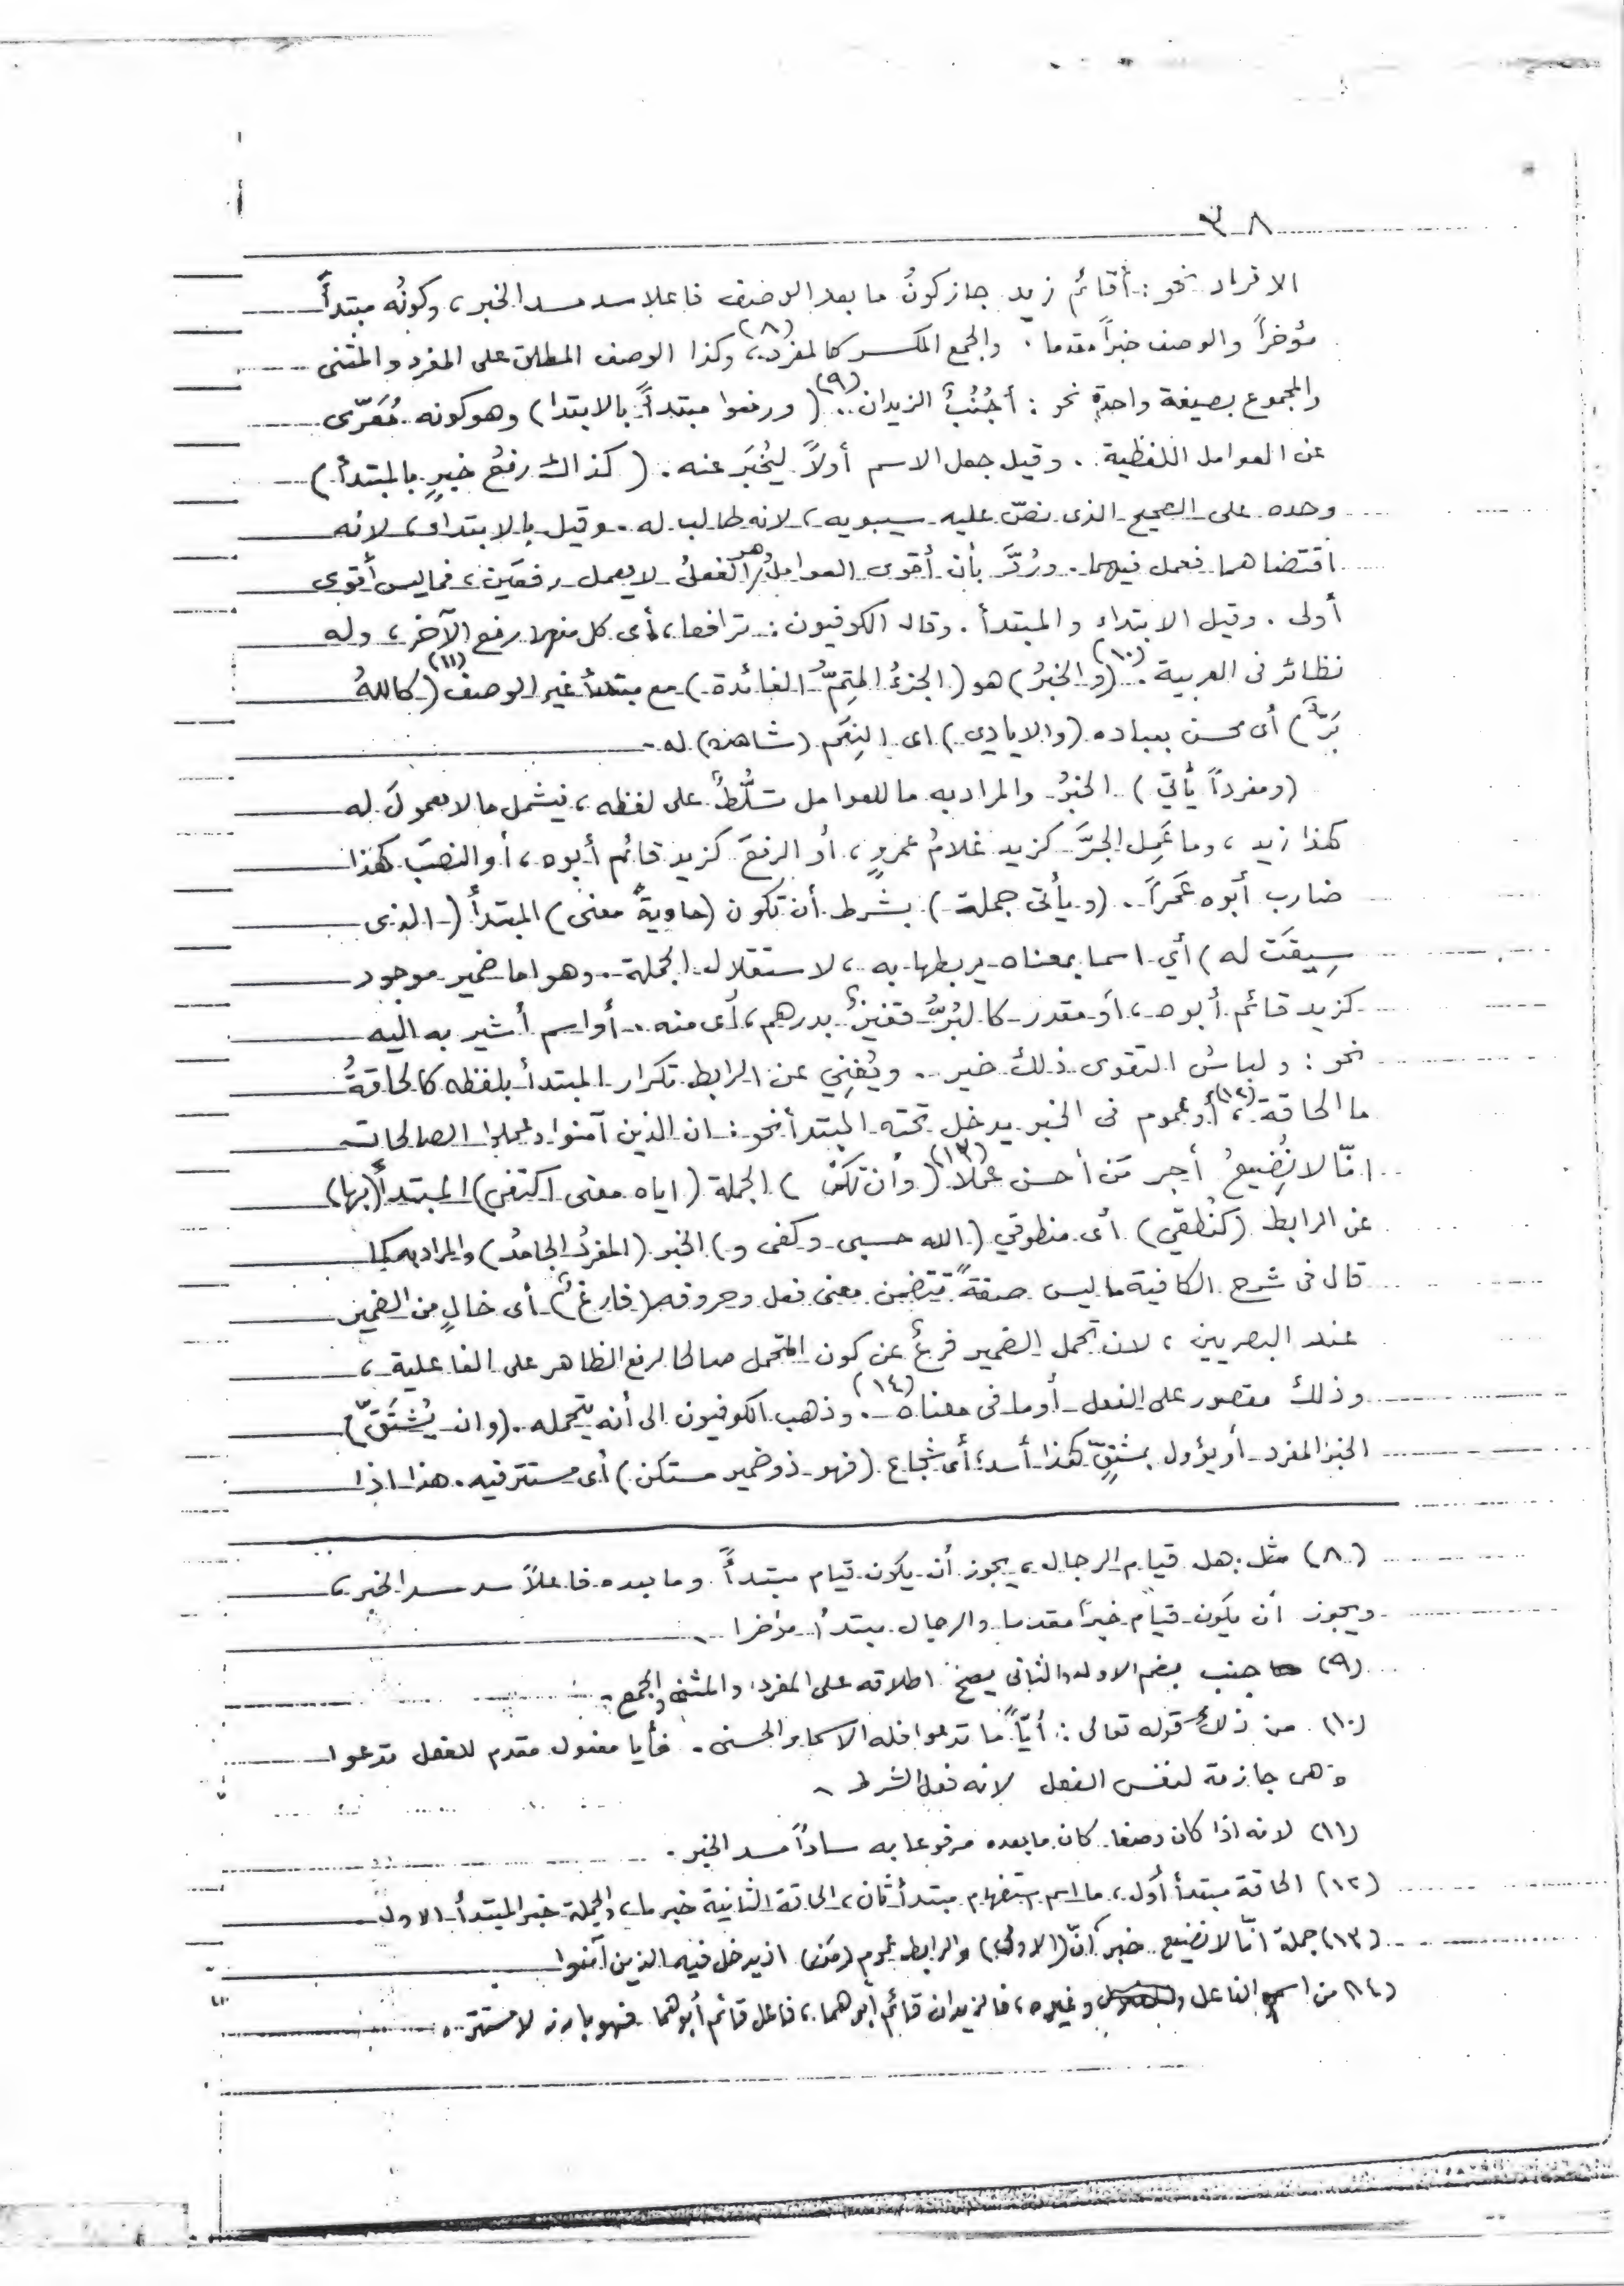 ٣٨
الافراد نحو : أقائم زيد جاز كونُ ما بعد الوصف فاعلا سد مسد الخبر ، وكونُه مبتدأً
مؤخراً والوصف خبراً مقدما . والجمع المكسر كالمفرد (٨) ، وكذا الوصف المطلق على المفرد والمثنى
والمجموع بصيغة واحدةٍ نحو : أجُنُبٌ الزيدان (٩) . ( ورفعوا مبتدأً بالابتدا ) وهو كونه مُعَرّى
عن العوامل اللفظية . وقيل جعل الاسم أولاً ليُخبَر عنه . ( كذاك رفعُ خبرٍ بالمبتدأ )
وحده على الصحيح الذى نصّ عليه سيبويه ، لانه طالب له . وقيل بالابتداء ، لانه
اقتضاهما فعمل فيهما . ورُدَّ بأن أقوى العوامل وهو الفعلُ لا يعمل رفعَين ، فما ليس أقوى
أولى . وقيل الابتداء والمبتدأ . وقال الكوفيون : ترافعا ، أى كل منهما رفع الآخر ، وله
نظائر فى العربية (١٠) . ( و الخبرُ ) هو ( الجزءُ المتِمُّ الفائدة ) مع مبتدأ غير الوصف (١١) ( كاللهُ
بَرٌّ ) أى محسن بعباده ( والايادي ) اى النِعَم ( شاهده ) له .
( ومفرداً يأتي ) الخبرُ والمراد به ما للعوامل تسلُّطٌ على لفظه ، فيشمل ما لا معمولَ له
كهذا زيد ، وما عَمِل الجرَّ كزيد غلامُ عمروٍ ، أو الرفعَ كزيد قائم أبوه ، أو النصبَ كهذا
ضارب أبوه عَمراً . ( و يأتى جملة ) بشرط أن تكون ( حاويةً معنى ) المبتدأ ( الذى
سِيقَت له ) أي اسما بمعناه يربطها به ، لاستقلال الجملة . وهو اما ضمير موجود
كزيد قائم أبوه ، أو مقدر كالبُرُّ قفيزٌ بدرهم ، أى منه . أو اسم أشير به اليه
نحو : ولباسُ التقوى ذلك خير . ويُغني عن الرابط تكرار المبتدأ بلفظه كالحاقةُ
ما الحاقة (١٢) ، أو عموم فى الخبر يدخل تحته المبتدأ نحو : ان الذين آمنوا وعملوا الصالحات
انّا لا نُضِيعُ أجر مَن أحسن عملا (١٣) ( وأن تكن ) الجملة ( اياه معنى اكتفى ) المبتدأ ( بها )
عن الرابط ( كنُطقي ) أى منطوقي ( الله حسبى وكفى و ) الخبر ( المفردُ الجامدُ ) والمراد به كما
قال فى شرح الكافية ما ليس صفةً تتضمن معنى فعل وحروفه ( فارغٌ ) أى خالٍ من الضمير
عند البصريين ، لان تحمل الضمير فرعٌ عن كون المتحمل صالحا لرفع الظاهر على الفاعلية ،
وذلك مقصور على الفعل أو ما فى معناه (١٤) . وذهب الكوفيون الى أنه يتحمله . ( وان يُشتَقّ )
الخبر المفرد أو يؤول بمشتقٍّ كهذا أسد ؛ أى شجاع ( فهو ذو ضمير مستكن ) أى مستتر فيه . هذا اذا
(٨) مثل : هل قيام الرجال ، يجوز أن يكون قيام مبتدأً وما بعده فاعلاً سد مسد الخبر ،
ويجوز أن يكون قيام خبراً مقدما والرجال مبتدأ مؤخرا .
(٩) جنب بضم الاول والثانى يصحّ اطلاقه على المفرد والمثنى والجمع .
(١٠) من ذلك قوله تعالى : أيّاً ما تدعوا فله الاسماء الحسنى . فأيا مفعول مقدم للفعل تدعوا
وهى جازمة لنفس الفعل لانه فعل الشرط .
(١١) لانه اذا كان وصفا كان ما بعده مرفوعا به ساداً مسد الخبر .
(١٢) الحاقة مبتدأ أول ، ما اسم استفهام مبتدأ ثان ، الحاقة الثانية خبر ما ، والجملة خبر المبتدأ الاول
(١٣) جملة انّا لا نضيع خبر انّ (الاولى) والرابط عموم (مَن) اذ يدخل فيه الذين آمنوا
(١٤) من اسم الفاعل وغيره ، فالزيدان قائم أبوهما ، فاعل قائم أبوهما فهو بارز لا مستتر .